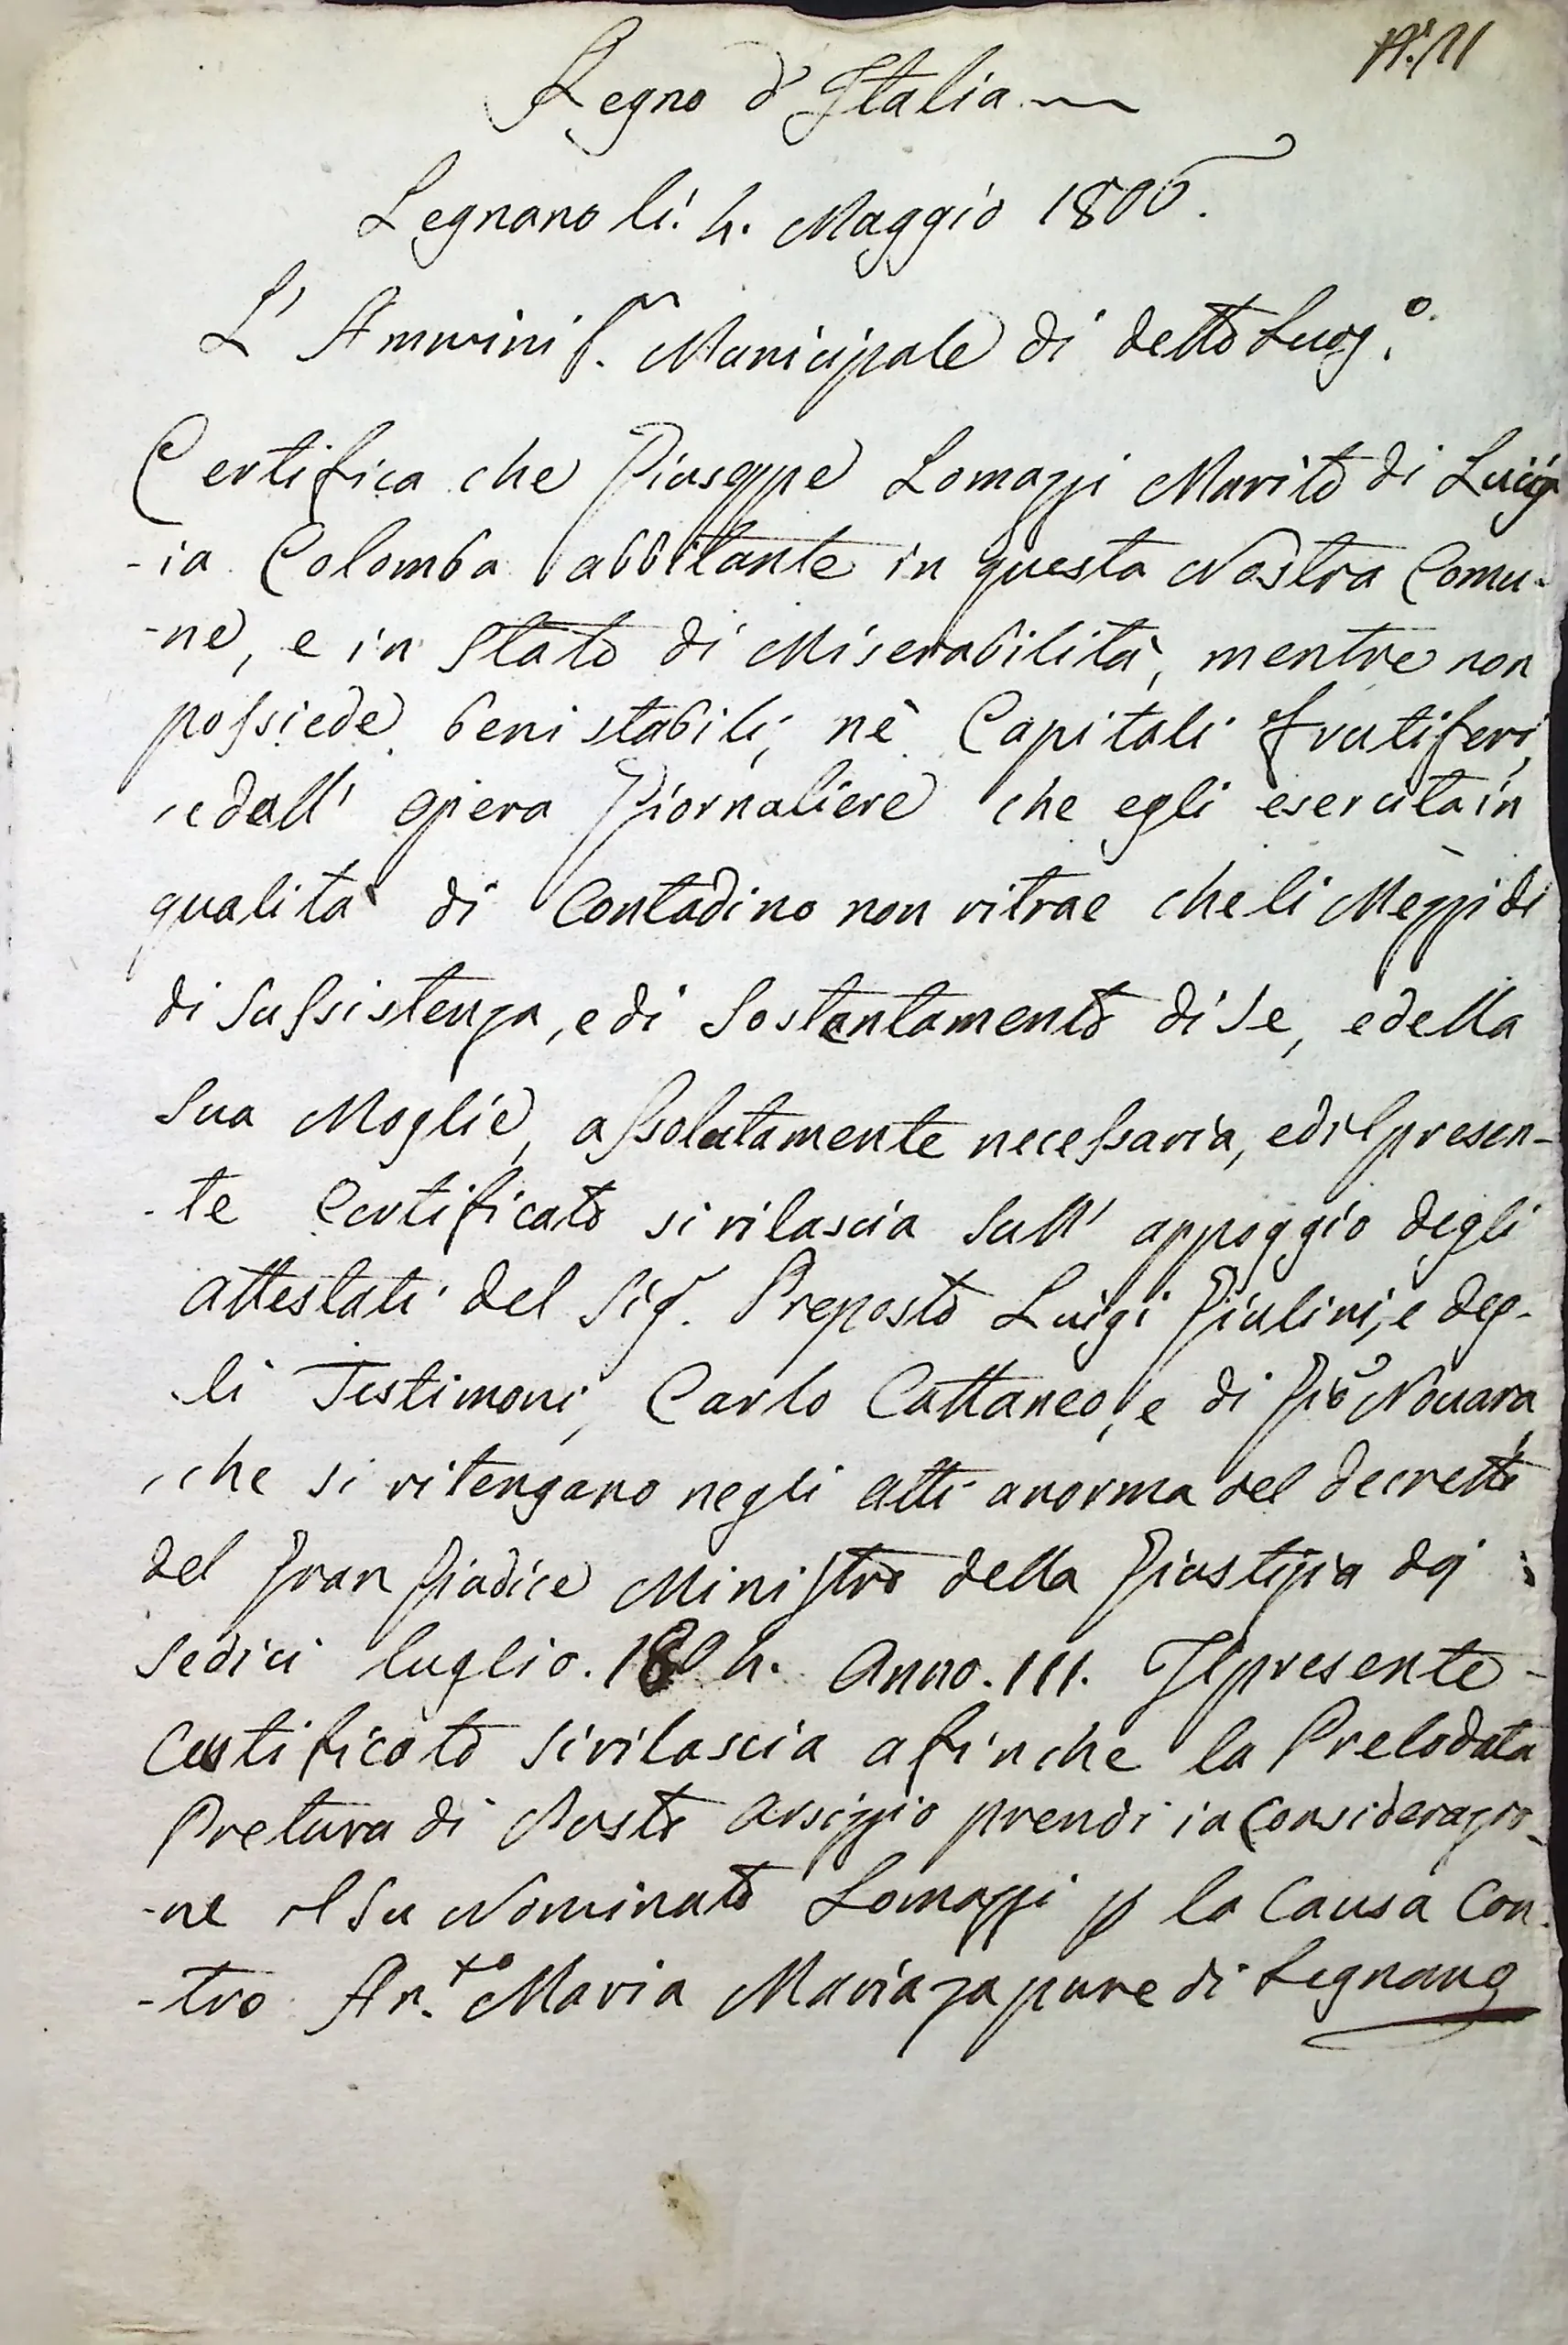 N.° 11
Regno d'Italia
Legnano li. 4. Maggio 1806.
L' Amminis.ne Municipale di detto Luog.°
Certifica che Giuseppe Lomazzi Marito di Luig
-ia Colomba abbitante in questa Nostra Comu-
-ne, e in Stato di Miserabilità, mentre non
possiede beni stabili, nè Capitali frutiferi,
e dall' opera Giornaliere che egli esercita in
qualita di Contadino non ritrae che li Mezzi di
di Sussistenza, e di Sostentamento di Se, e della
Sua Moglie, assolutamente necessaria, ed il presen-
-te Certificato si rilascia Sull' appoggio degli
attestati del Sig.r Preposto Luigi Giulini, e deg-
-li Testimoni, Carlo Cattaneo, e di Gio Novara,
che si ritengano negli atti a norma del decretto
del Gran Giudice Ministro della Giustizia dei
Sedici luglio. 1804. Anno. III. Il presente
Certificato si rilascia afinche la Prelodata
Pretura di Busto Arsizzio prendi in Considerazio-
-ne il Su Nominato Lomazzi p la Causa Con-
-tro An.to Maria Mariaza pure di Legnano